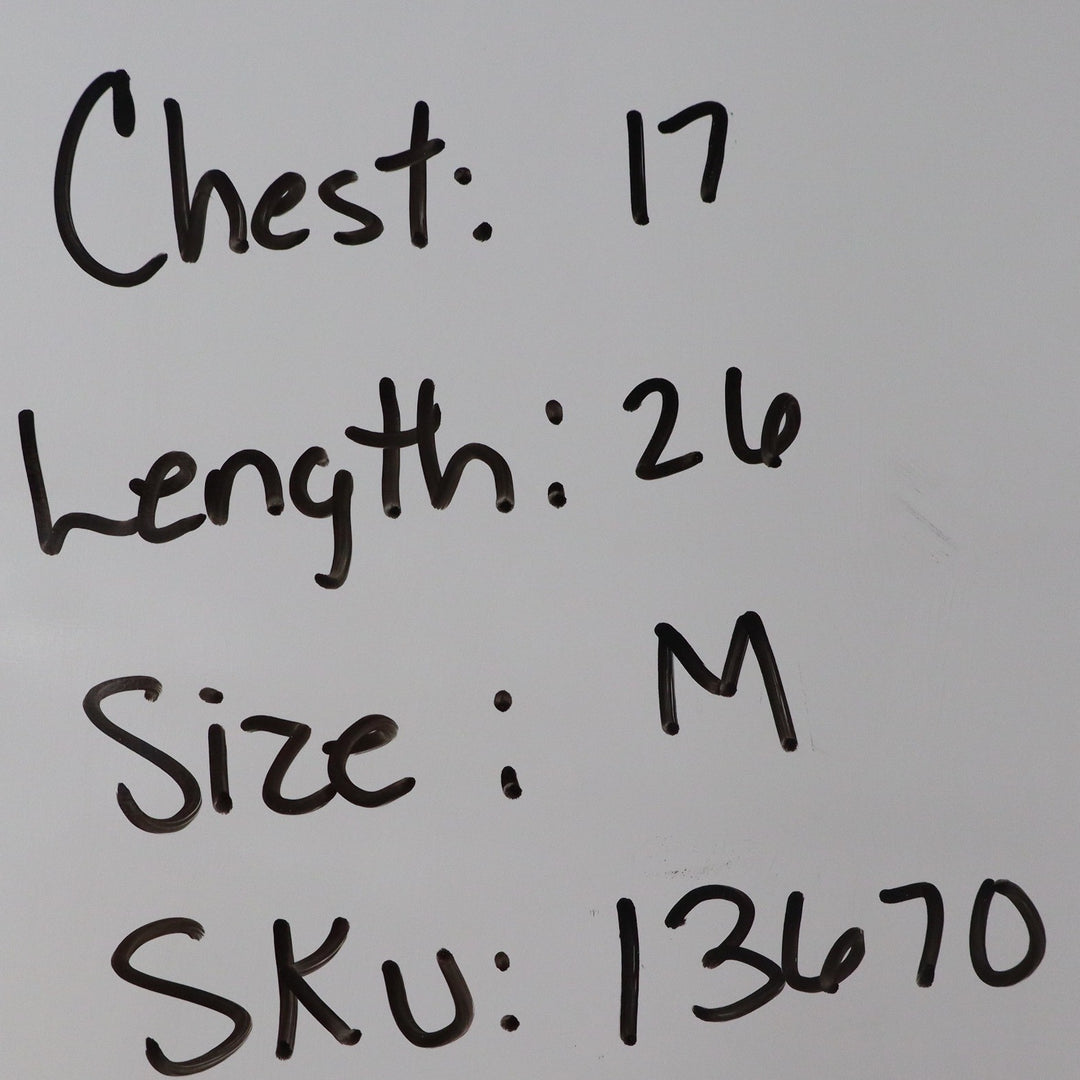 Chest: 17
Length: 26
Size: M
SKU: 13670